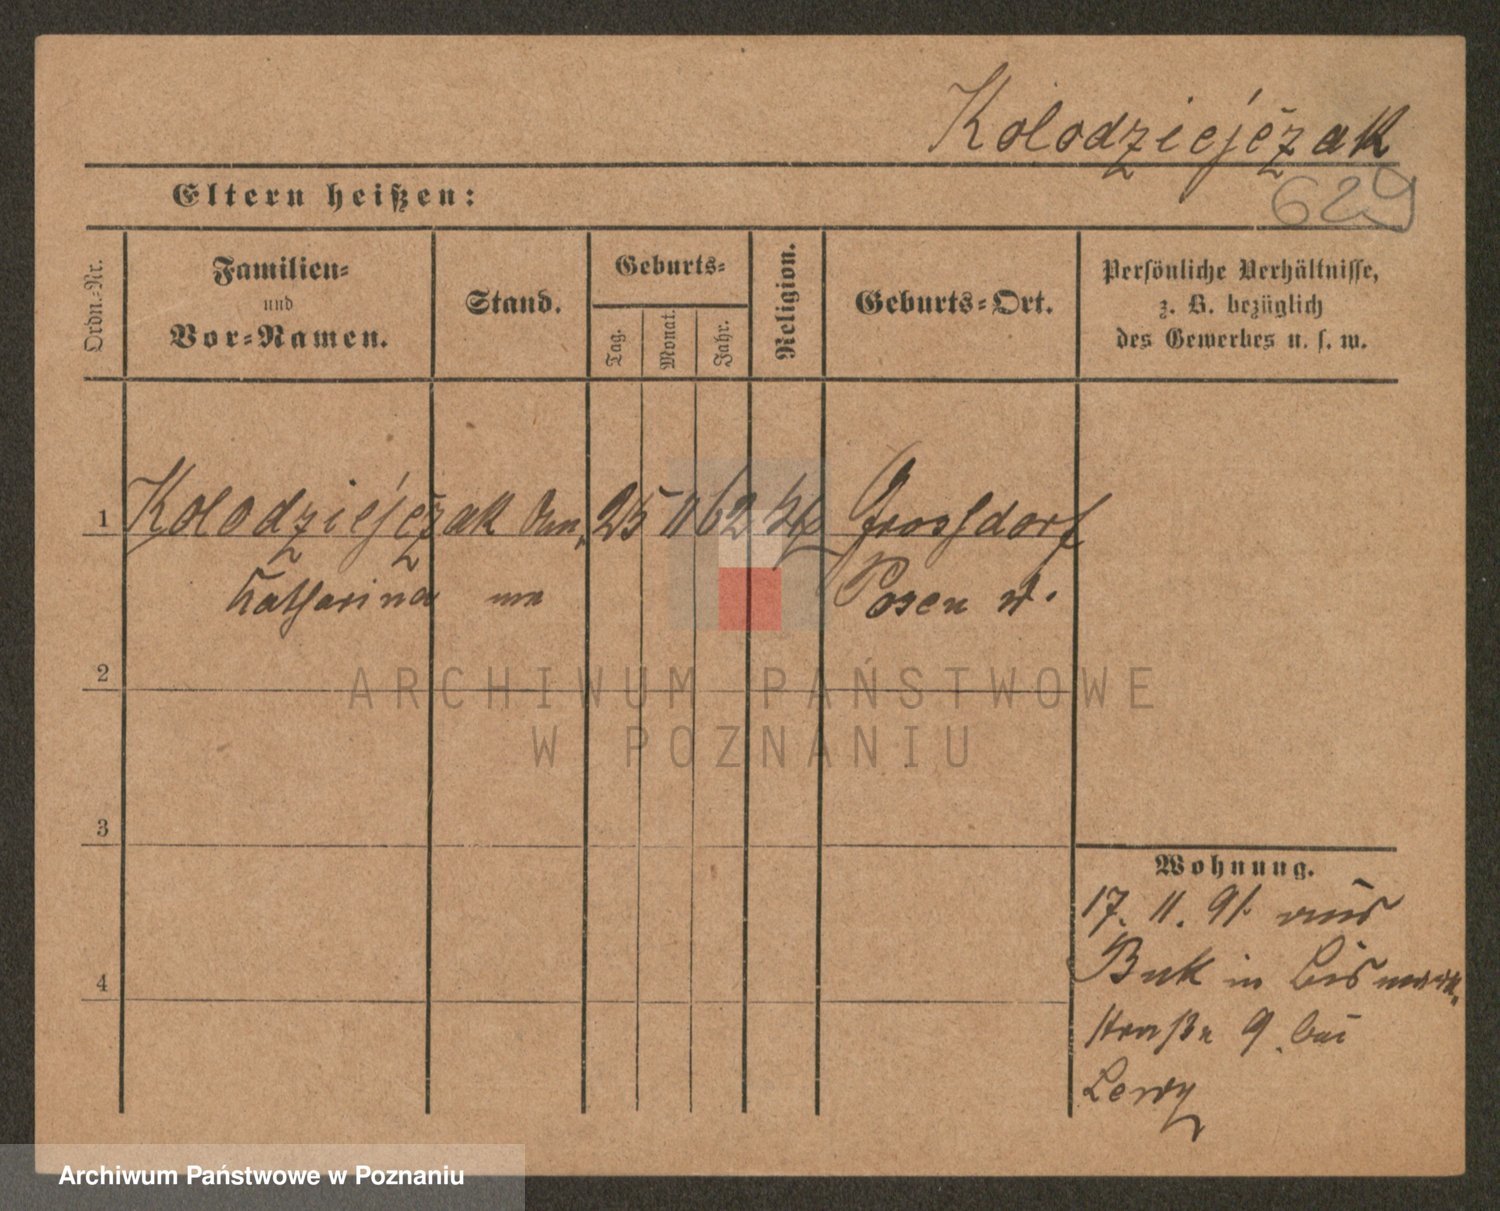 Kolodziejčzak
629
Eltern heißen:
Ordn.-Nr.
Familien-
und
Vor-Namen.
Stand.
Geburts-
Tag.
Monat.
Jahr.
Religion.
Geburts-Ort.
Persönliche Verhältnisse,
z. B. bezüglich
des Gewerbes u. s. w.
1 Kolodziejčzak 25 11 62 kth Grossdorf
Katharina Posen
2
ARCHIWUM PAŃSTWOWE
W POZNANIU
3
Wohnung.
17. 11. 91. aus
Buk in Bismark-
straße 9. bei
4
Lewy
Archiwum Państwowe w Poznaniu